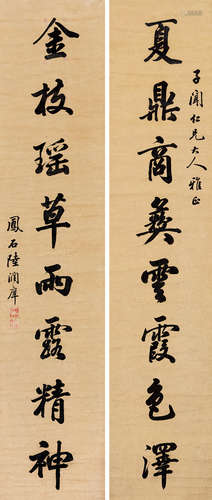 子闻仁兄大人雅正
夏鼎商彝雲霞色澤
金枝瑶草雨露精神
鳳石陸潤庠